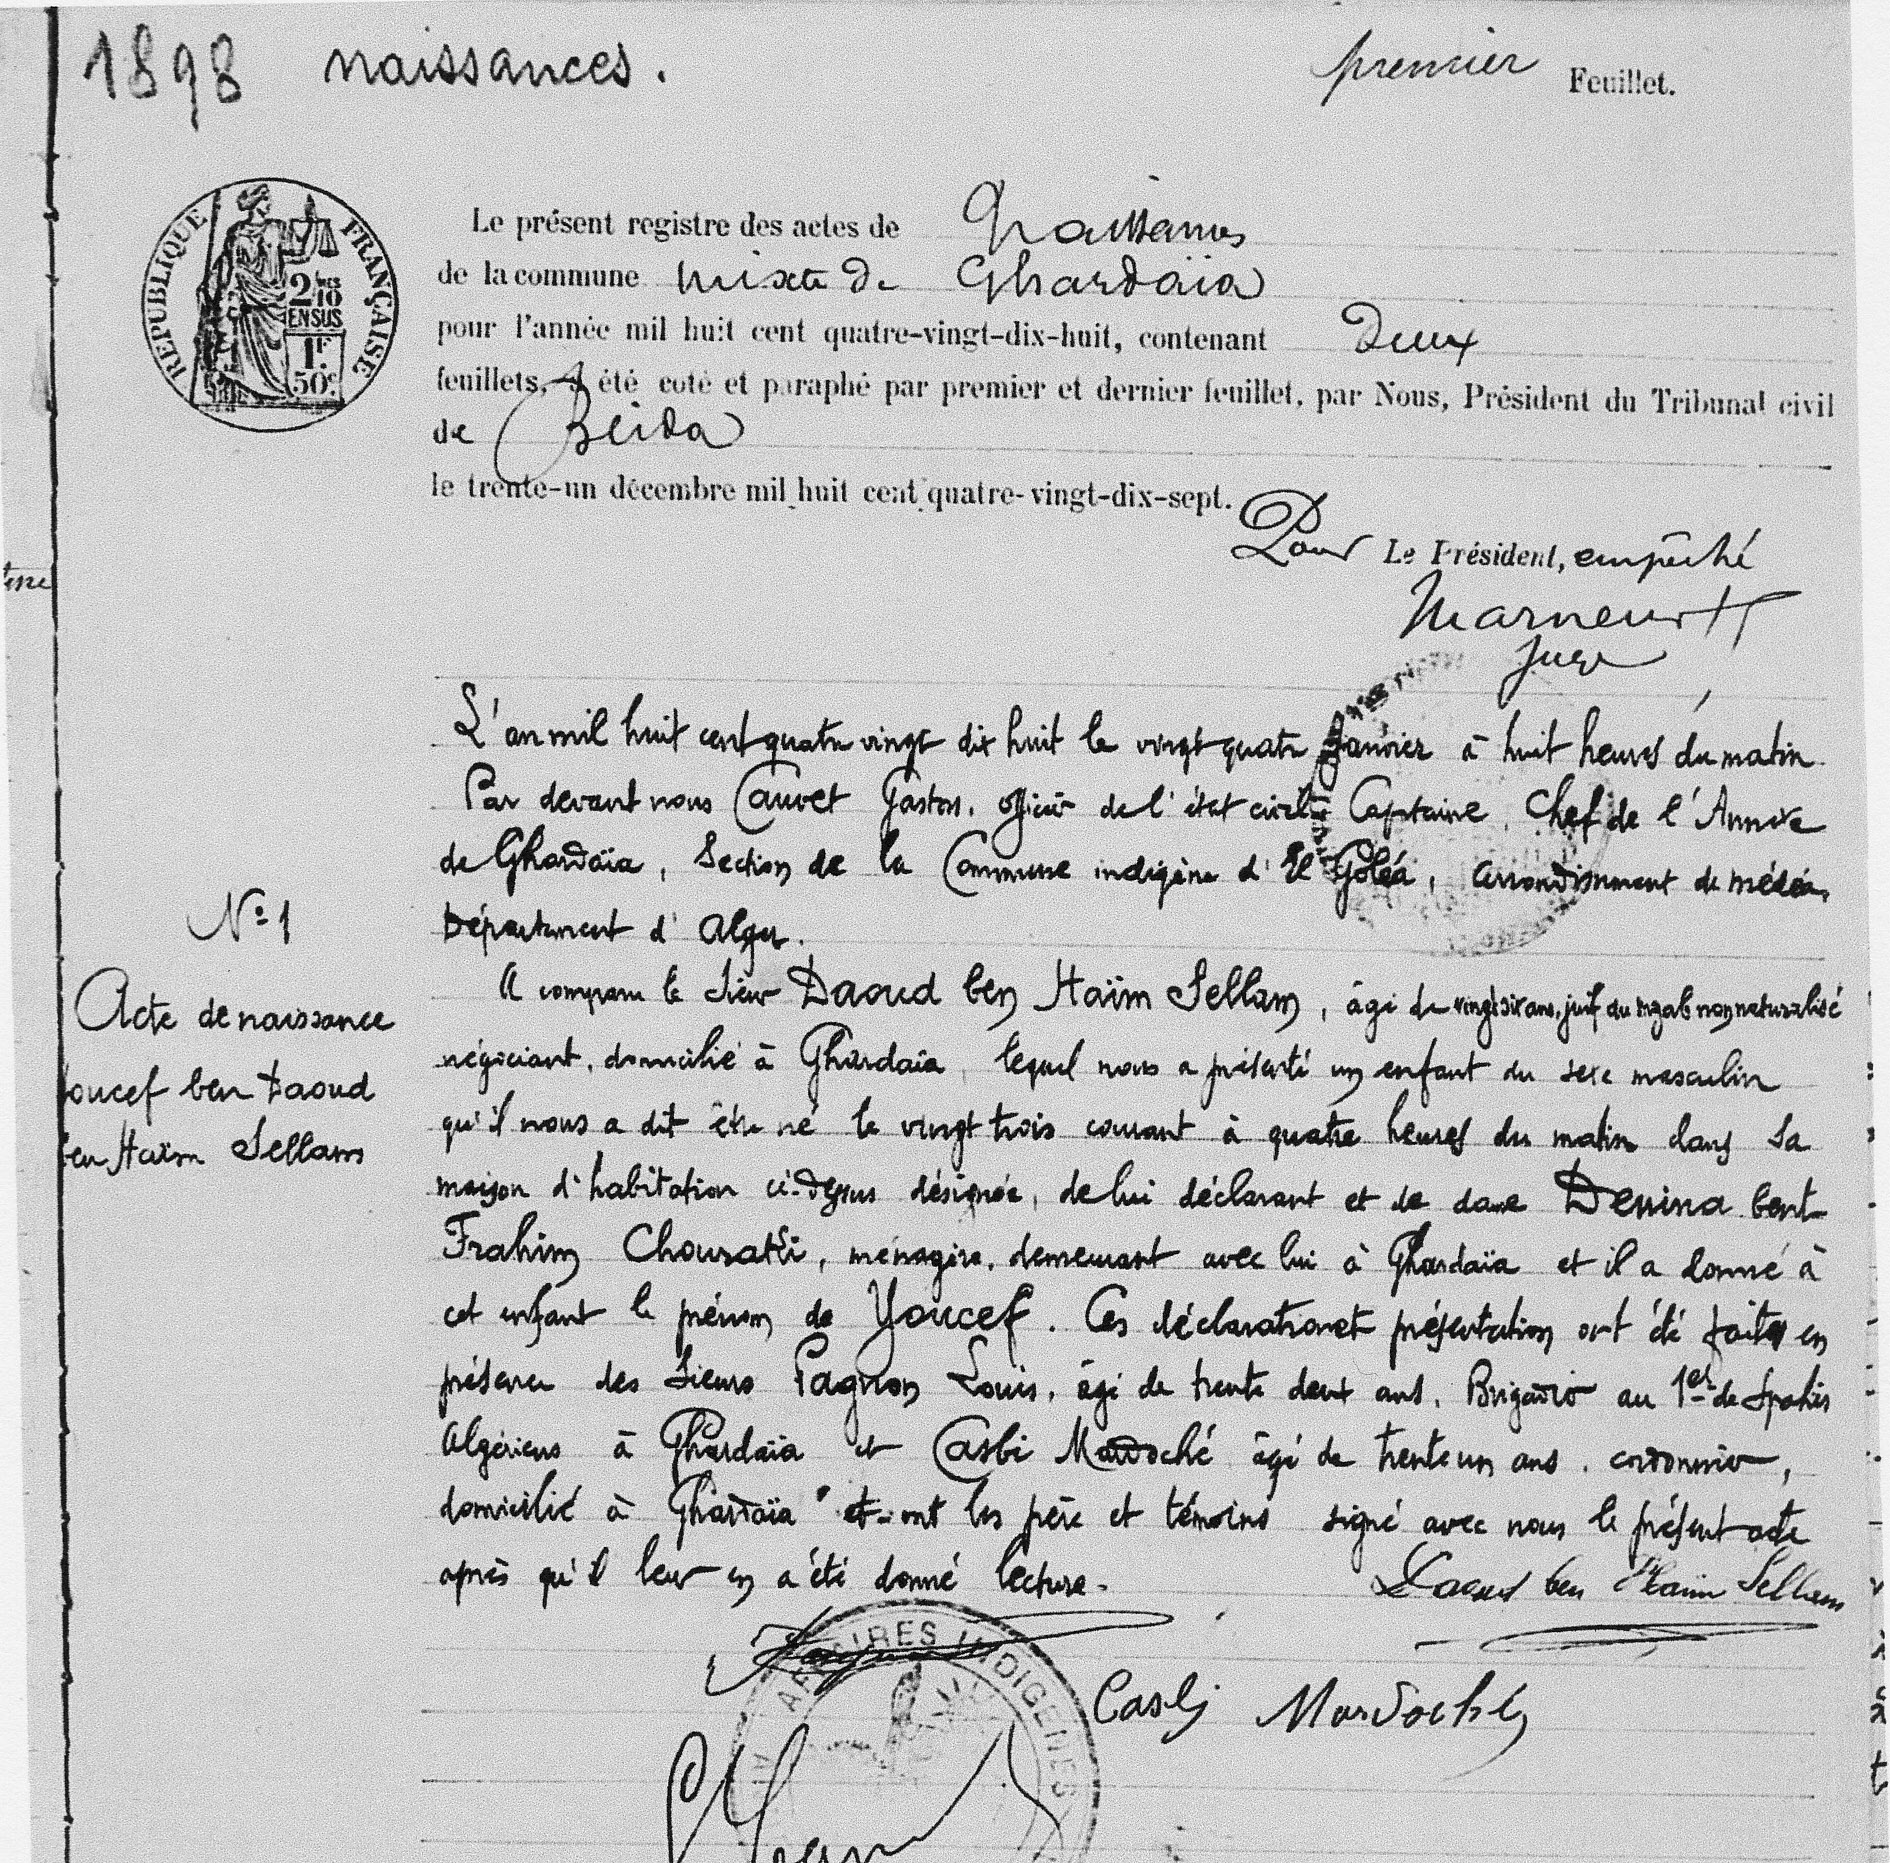 1898 naissances.
premier Feuillet.
REPUBLIQUE FRANÇAISE
2/10
EN SUS
1F.
50c.
Le présent registre des actes de Naissances
de la commune mixte de Ghardaïa
pour l'année mil huit cent quatre-vingt-dix-huit, contenant Deux
feuillets, a été coté et paraphé par premier et dernier feuillet, par Nous, Président du Tribunal civil
de Blida
le trente-un décembre mil huit cent quatre-vingt-dix-sept.
Pour Le Président, empêché
Juge
L'an mil huit cent quatre vingt dix huit le vingt quatre Janvier à huit heures du matin
Par devant nous Cauvet Gaston, officier de l'état civil, Capitaine, Chef de l'Annexe
de Ghardaïa, Section de la Commune indigène d'El Goléa, arrondissement de Médéa,
Département d'Alger.
N° 1
Acte de naissance
Youcef ben Daoud
ben Haïm Sellam
A comparu le Sieur Daoud ben Haïm Sellam, âgé de vingt six ans, juif du mzab non naturalisé
négociant, domicilié à Ghardaïa, lequel nous a présenté un enfant du sexe masculin
qu'il nous a dit être né le vingt trois courant à quatre heures du matin dans sa
maison d'habitation ci-dessus désignée, de lui déclarant et de dame bent
Frahim, ménagère, demeurant avec lui à Ghardaïa et il a donné à
cet enfant le prénom de Youcef. Ces déclaration et présentation ont été faites en
présence des Sieurs Pagnon Louis, âgé de trente deux ans, Brigadier au 1er de Spahis
Algériens à Ghardaïa et Casbi Mardoché âgé de trente un ans, cordonnier,
domicilié à Ghardaïa et ont les père et témoins signé avec nous le présent acte
après qu'il leur en a été donné lecture.
Daoud ben Haïm Sellam
AFFAIRES INDIGENES
Casbi Mardochée